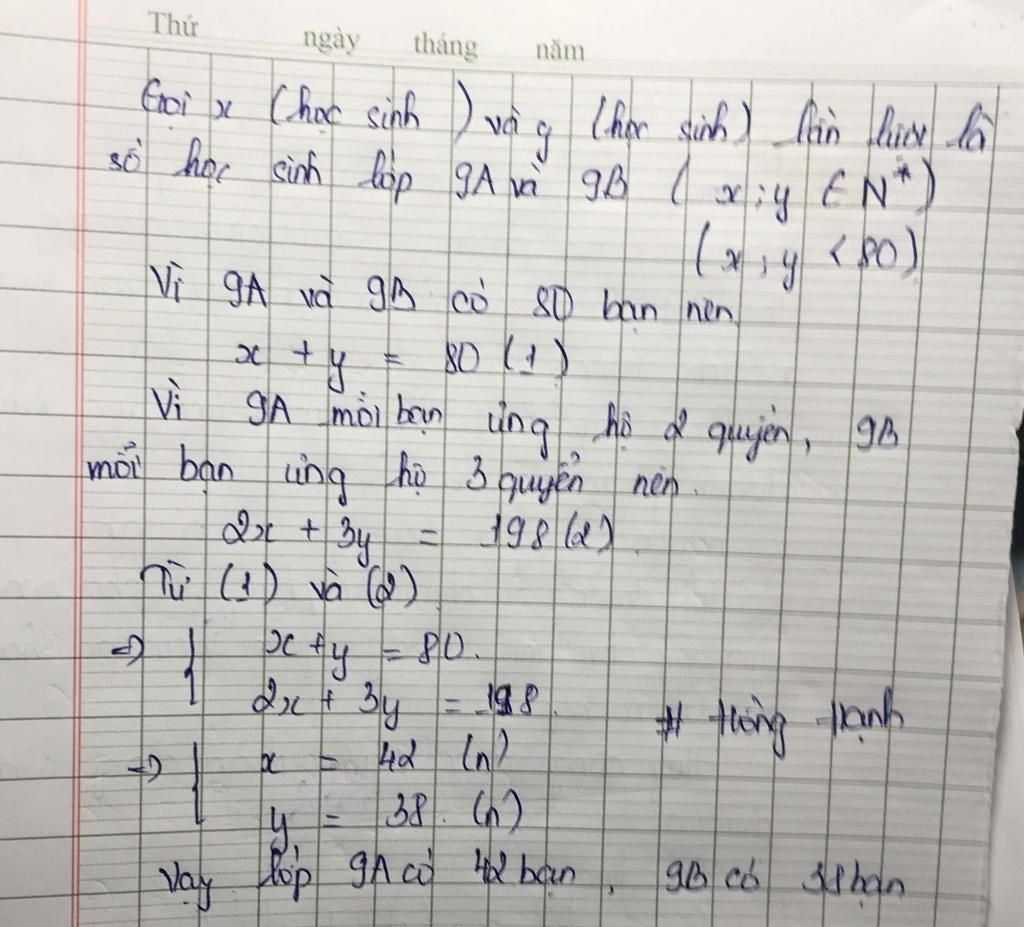 Thứ ngày tháng năm
Gọi x (học sinh) và y (học sinh) lần lượt là
số học sinh lớp 9A và 9B (x; y ∈ N*)
(x; y < 80)
Vì 9A và 9B có 80 bạn nên
x + y = 80 (1)
Vì 9A mỗi bạn ủng hộ 2 quyển, 9B
mỗi bạn ủng hộ 3 quyển nên.
2x + 3y = 198 (2).
Từ (1) và (2)
=> { x + y = 80.
2x + 3y = 198.
# Hồng Hạnh
=> { x = 42 (n)
y = 38. (n)
Vậy lớp 9A có 42 bạn, 9B có 38 bạn